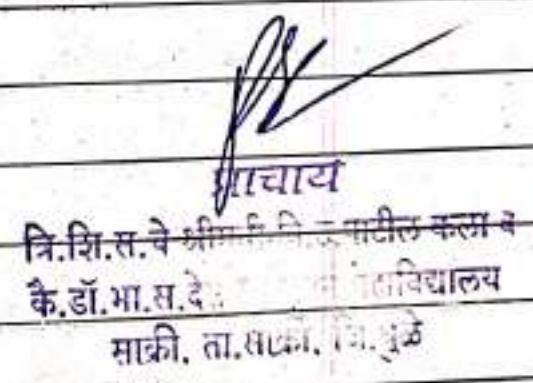 प्राचार्य
त्रि.शि.स.चे पाटील कला व
कै.डॉ.भा.स.दे महाविद्यालय
साक्री, ता.साक्री, जि.धुळे